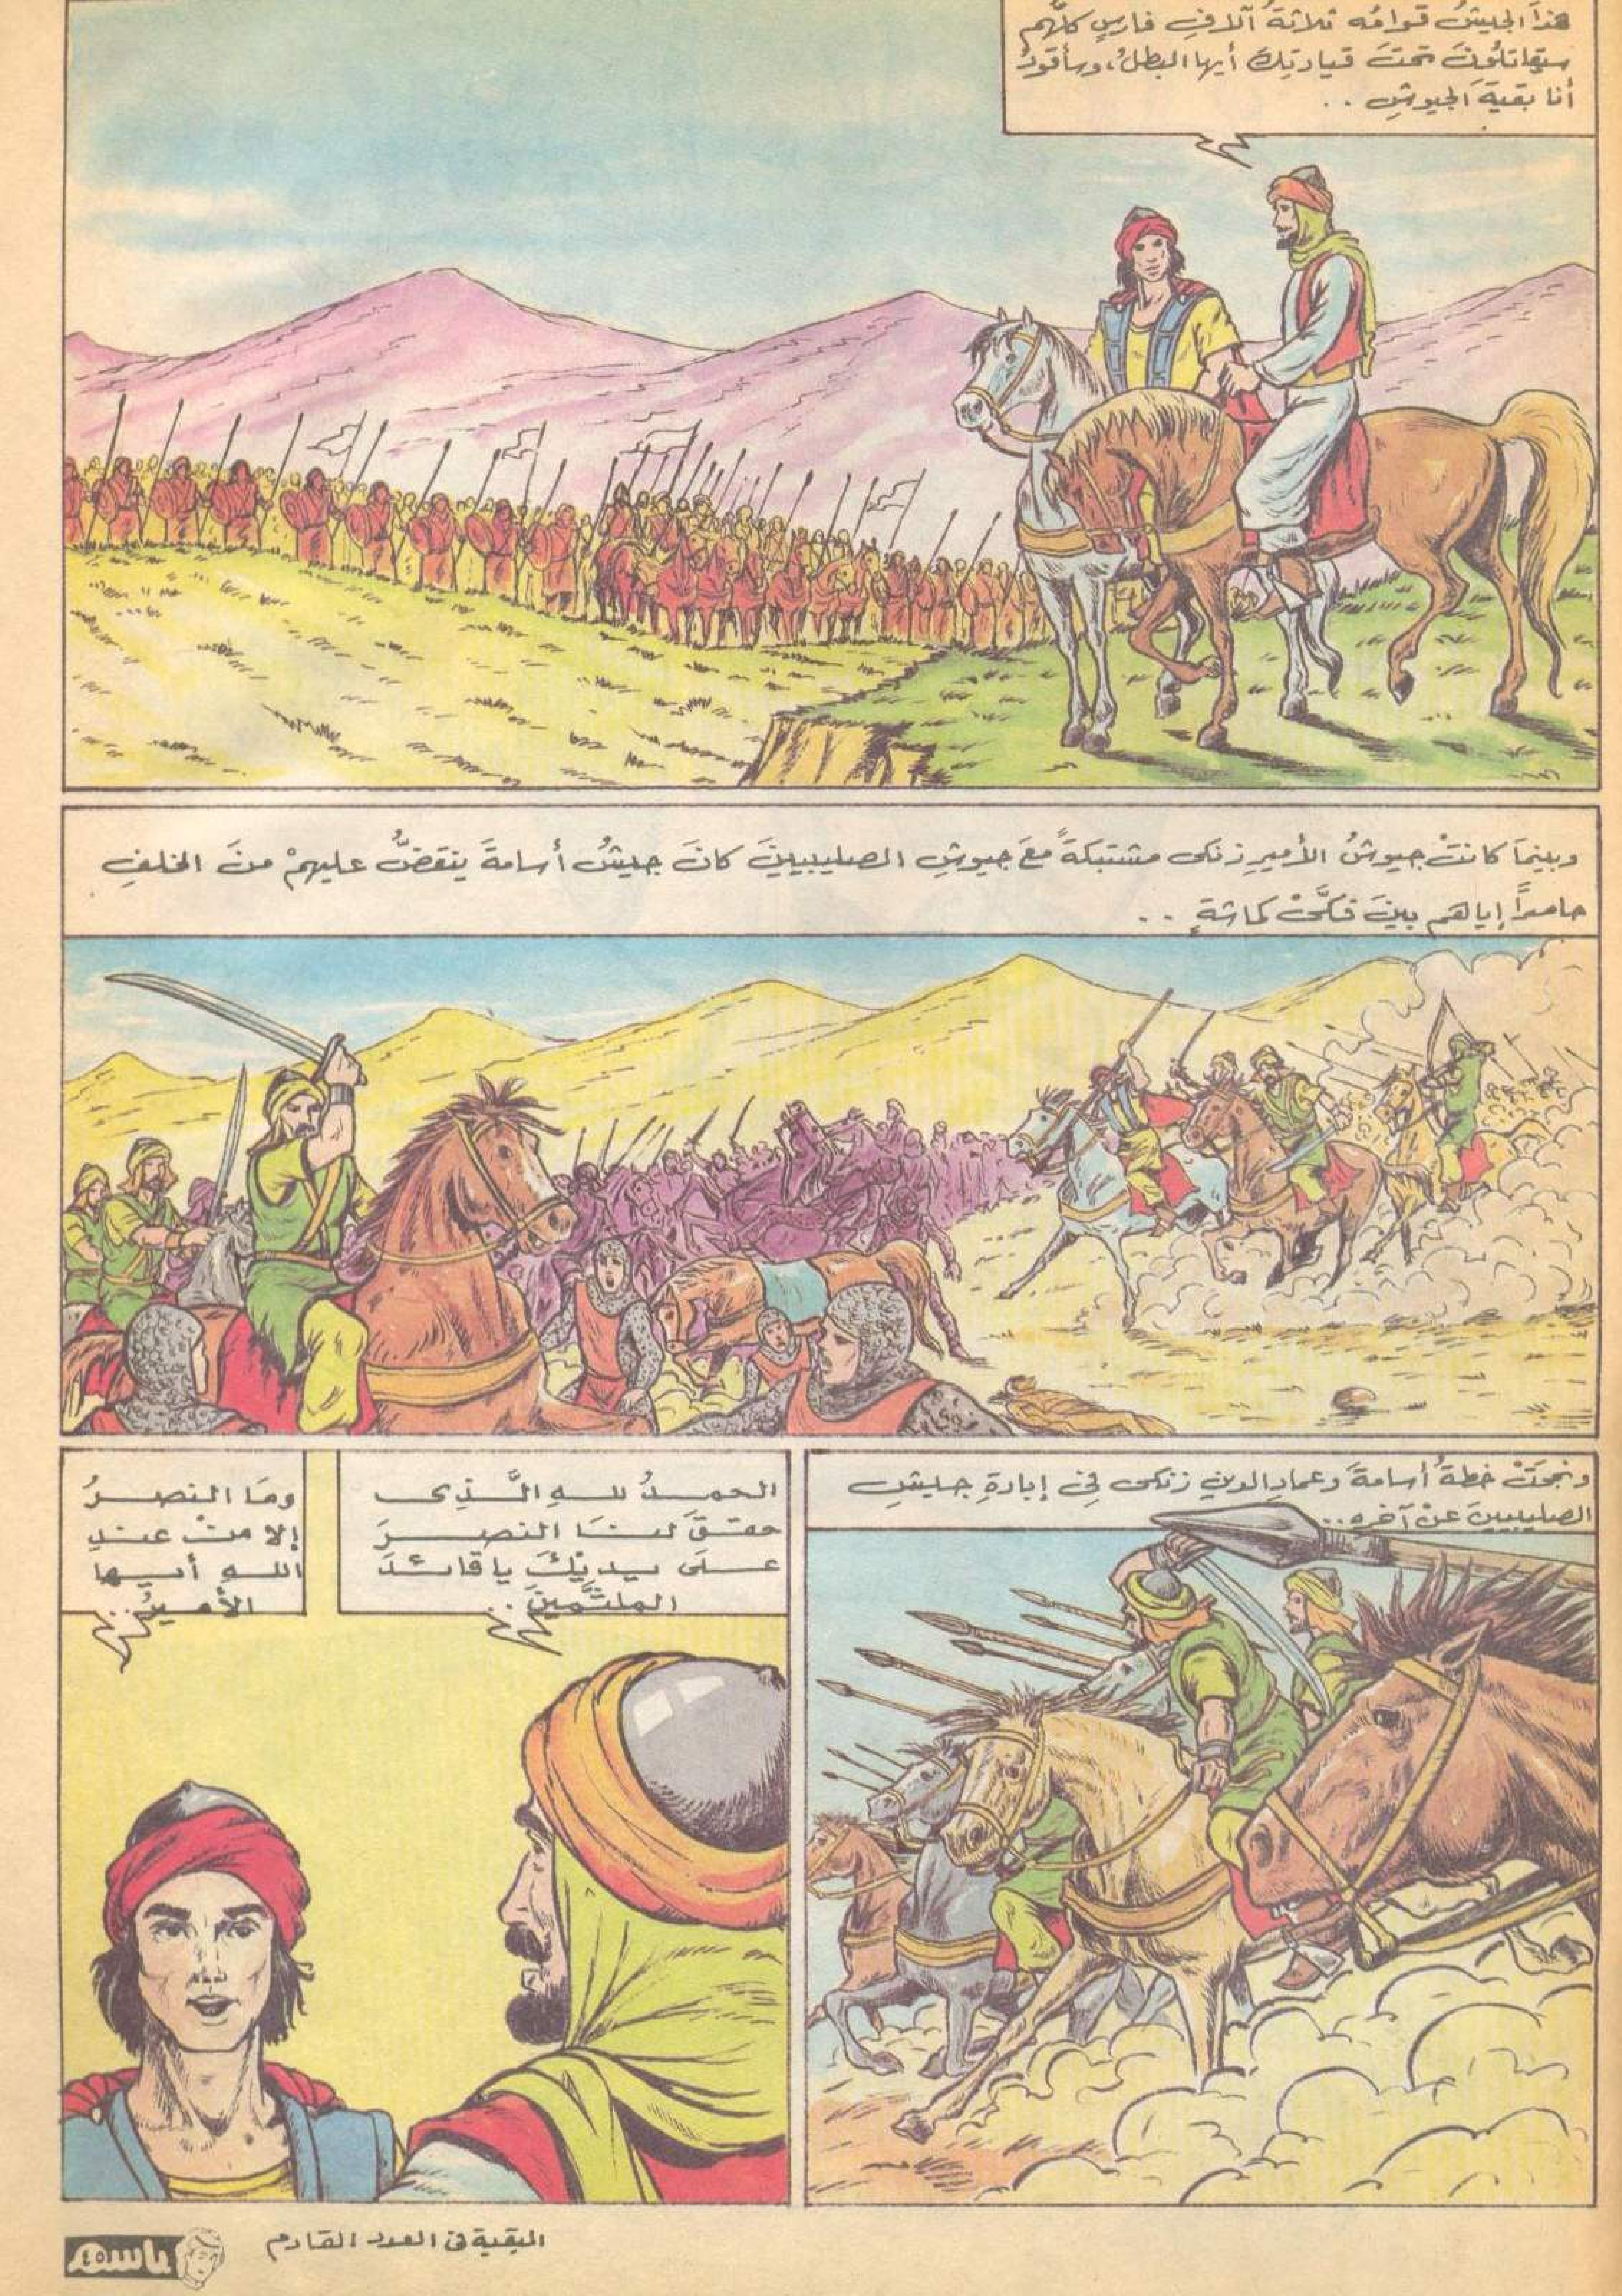 هذا الجيشُ قوامُه ثلاثةُ آلافِ فارسٍ كلّهم
سيقاتلُونَ تحتَ قيادتِكَ أيها البطلُ، وسأقودُ
أنا بقيةَ الجيوشِ . .
وبينمَا كانتْ جيوشُ الأميرِ زنكى مشتبكةً معَ جيوشِ الصليبيينَ كانَ جيشُ أسامةَ ينقضُّ عليهمْ منَ الخلفِ
حاصراً إياهم بينَ فكَّىْ كماشةٍ . .
ونجحَتْ خطةُ أسامةَ وعمادِ الدينِ زنكى فى إبادةِ جيشِ
الصليبيينَ عنْ آخرِهِ..
الحمدُ للهِ الَّذِى
حققَ لنَا النصرَ
علَى يديْكَ يا قائدَ
الملثَّمينَ . .
ومَا النصرُ
إلا منْ عندِ
اللهِ أيها
الأميرُ . .
البقية فى العدد القادم
باسم ٤٥